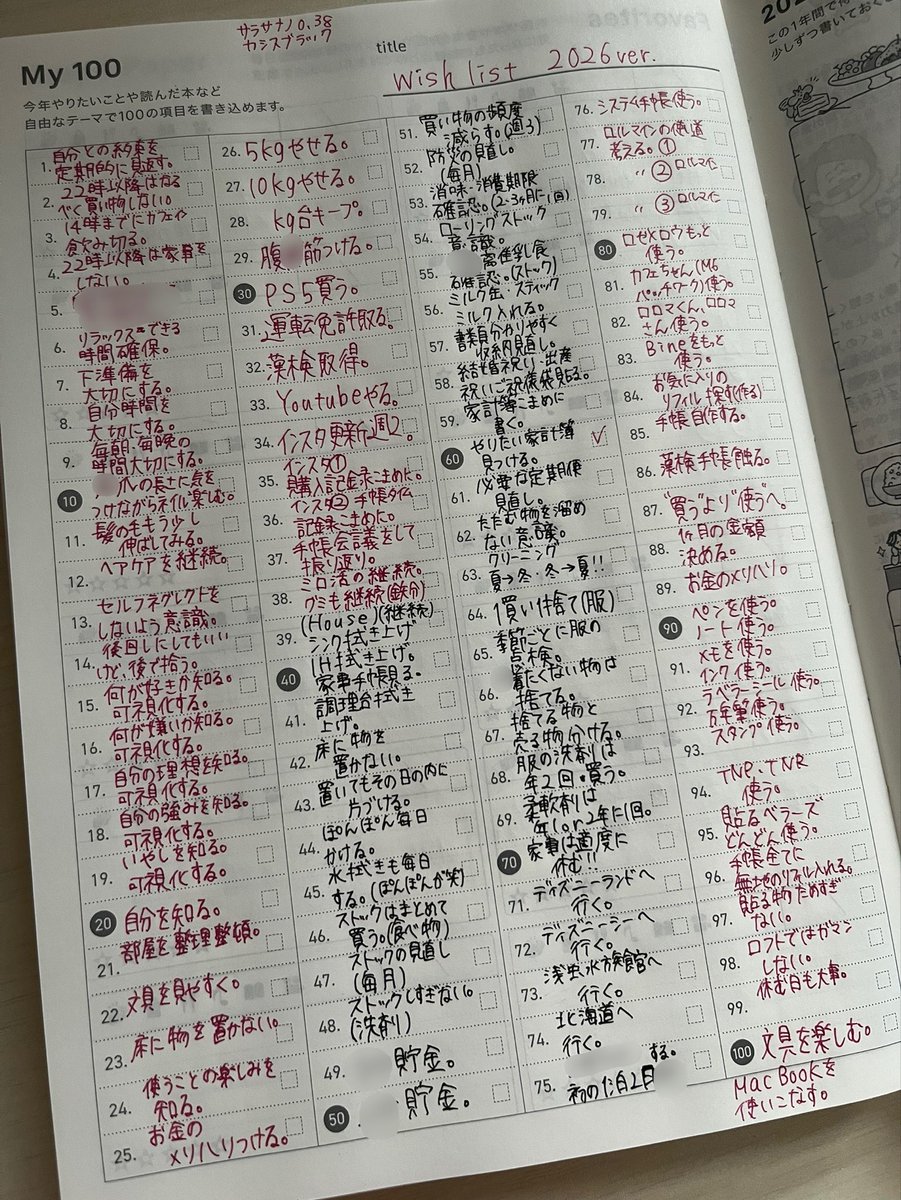 サラサナノ0.38
カシスブラック
My 100
今年やりたいことや読んだ本など
自由なテーマで100の項目を書き込めます。
title
Wish list 2026 ver.
1. 自分との約束を
定期的に見返す。
2. 22時以降はなる
べく買い物しない。
3. 14時までにカフェイン
飲み切る。
4. 22時以降は家事を
しない。
5.
6. リラックスできる
時間確保。
7. 下準備を
大切にする。
8. 自分時間を
大切にする。
9. 毎朝・毎晩の
時間大切にする。
10 ルの長さに気を
つけながらネイル楽しむ。
11. 髪の毛もう少し
伸ばしてみる。
12. ヘアケアを継続。
13. セルフネグレクトを
しないよう意識。
14. 後回しにしてもいい
けど、後で拾う。
15. 何が好きか知る。
可視化する。
16. 何が嫌いか知る。
可視化する。
17. 自分の理想を知る。
可視化する。
18. 自分の強みを知る。
可視化する。
19. いやしを知る。
可視化する。
20 自分を知る。
21. 部屋を整理整頓。
22. 文具を見やすく。
23. 床に物を置かない。
24. 使うことの楽しみを
知る。
25. お金の
メリハリつける。
26. 5kgやせる。
27. 10kgやせる。
28. kg台キープ。
29. 腹筋つける。
30 PS5買う。
31. 運転免許取る。
32. 漢検取得。
33. Youtubeやる。
34. インスタ更新週2。
35. インスタ①
購入記録こまめに。
36. インスタ② 手帳タイム
記録こまめに。
37. 手帳会議をして
振り返り。
38. ミロ活の継続。
グミも継続(鉄分)
39. (House)(継続)
シンク拭き上げ
40 IH拭き上げ。
家事手帳見る。
41. 調理台拭き
上げ。
42. 床に物を
置かない。
43. 置いてもその日の内に
片づける。
44. ぽんぽん毎日
かける。
45. 水拭きも毎日
する。(ぽんぽんが笑)
46. ストックはまとめて
買う。(食べ物)
47. ストックの見直し
(毎月)
48. ストックしすぎない。
(洗剤)
49. 貯金。
50 貯金。
51. 買い物の頻度
減らす。(週3)
52. 防災の見直し。
(毎月)
53. 消味・消費期限
確認。(2-3ヶ月に1回)
54. ローリングストック
意識。
55. 離乳食
確認。(ストック)
56. ミルク缶、スティック
ミルク入れる。
57. 書類分りやすく
収納見直し。
58. 結婚祝い・出産
祝いご祝儀袋見る。
59. 家計簿こまめに
書く。
60 やりたい家計簿
見つける。
61. 必要な定期便
見直し。
62. たたむ物を溜め
ない意識。
63. クリーニング
夏→冬・冬→夏!!
64. 1買い1捨て(服)
65. 季節ごとに服の
点検。
66. 着たくない物は
捨てる。
67. 捨てる物と
売る物分ける。
68. 服の洗剤は
年2回・買う。
69. 柔軟剤は
年1 or 2年に1回。
70 家事は適度に
休む!!
71. ディズニーランドへ
行く。
72. ディズニーシーへ
行く。
73. 浅虫水族館へ
行く。
74. 北海道へ
行く。
75. する。
初の1泊2日
76. システム手帳使う。
77. ロルマインの使い道
考える。①
78. 〃 ② ロルマイン
79. 〃 ③ ロルマイン
80 ロゼメロウもっと
使う。
81. カフェちゃん(M6
パッチワーク)使う。
82. ロロマくん、ロロマ
さん使う。
83. Bineをもっと
使う。
84. お気に入りの
リフィル探す(作る)
85. 手帳自作する。
86. 漢検手帳触る。
87. "買う"より"使う"へ
88. 1ヶ月の金額
決める。
89. お金のメリハリ。
90 ペンを使う。
ノート使う。
91. メモを使う。
インク使う。
92. ラベラーシール使う。
万年筆使う。
93. スタンプ使う。
94. TNP、TNR
使う。
95. 貼るベラーズ
どんどん使う。
96. 手帳全てに
無地のリフィル入れる。
97. 貼る物ためすぎ
ない。
98. ロフトではガマン
しない。
99. 休む日も大事。
100 文具を楽しむ。
MacBookを
使いこなす。
この1年間で
少しずつ書いておく